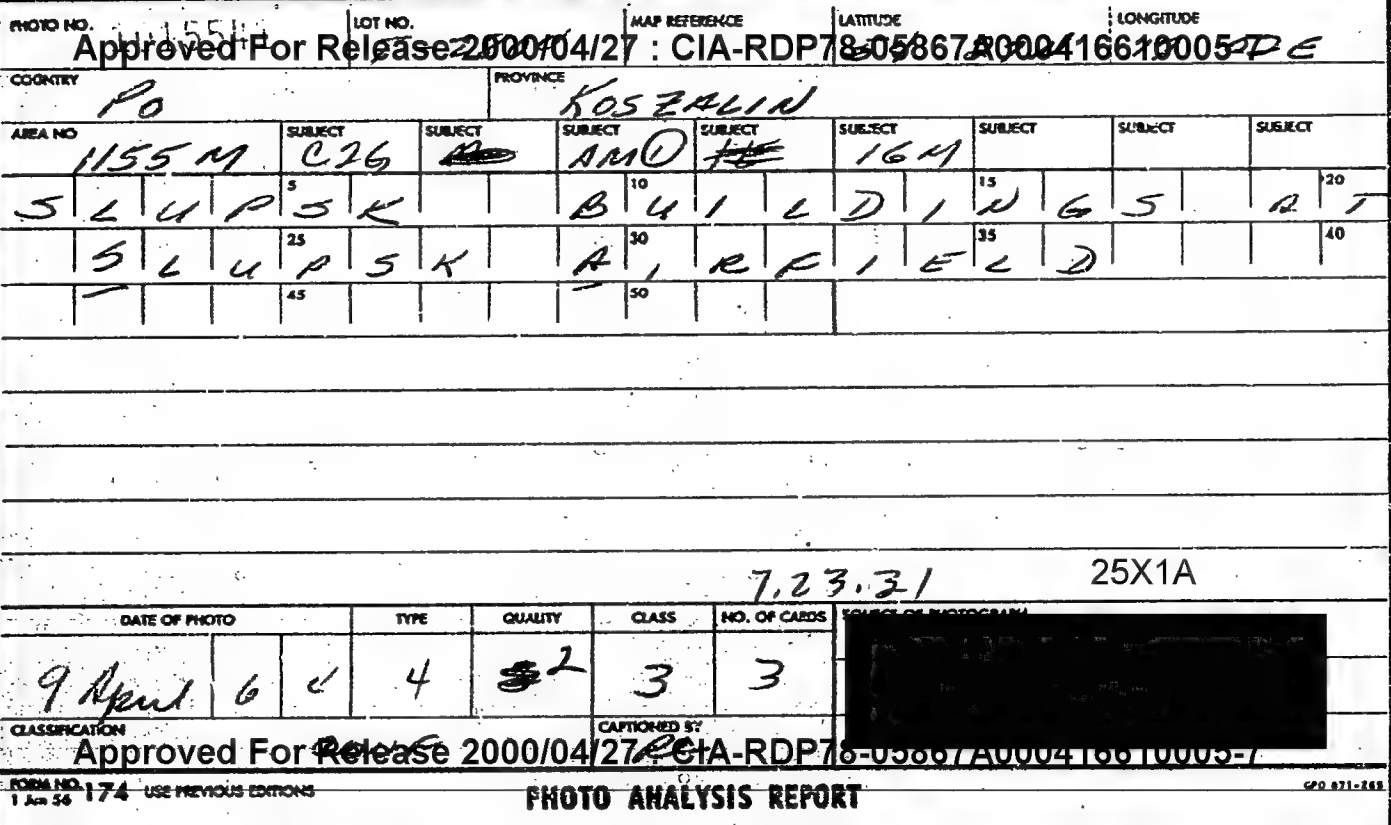 PHOTO NO. LOT NO. MAP REFERENCE LATITUDE LONGITUDE
Approved For Release 2000/04/27 : CIA-RDP78-05867A000416610005-7
COUNTRY PROVINCE
Po KOSZALIN
AREA NO SUBJECT SUBJECT SUBJECT SUBJECT SUBJECT SUBJECT SUBJECT SUBJECT
1155 M C26 AM 1 16M
5 10 15 20
SLUPSK BUILDINGS AT
25 30 35 40
SLUPSK AIRFIELD
45 50
7.23.31 25X1A
DATE OF PHOTO TYPE QUALITY CLASS NO. OF CARDS SOURCE OF PHOTOGRAPH
9 April 6 4 2 3 3
CLASSIFICATION CAPTIONED BY
Approved For Release 2000/04/27 : CIA-RDP78-05867A000416610005-7
FORM NO. 174 USE PREVIOUS EDITIONS PHOTO ANALYSIS REPORT GPO 871-265
1 Jan 56